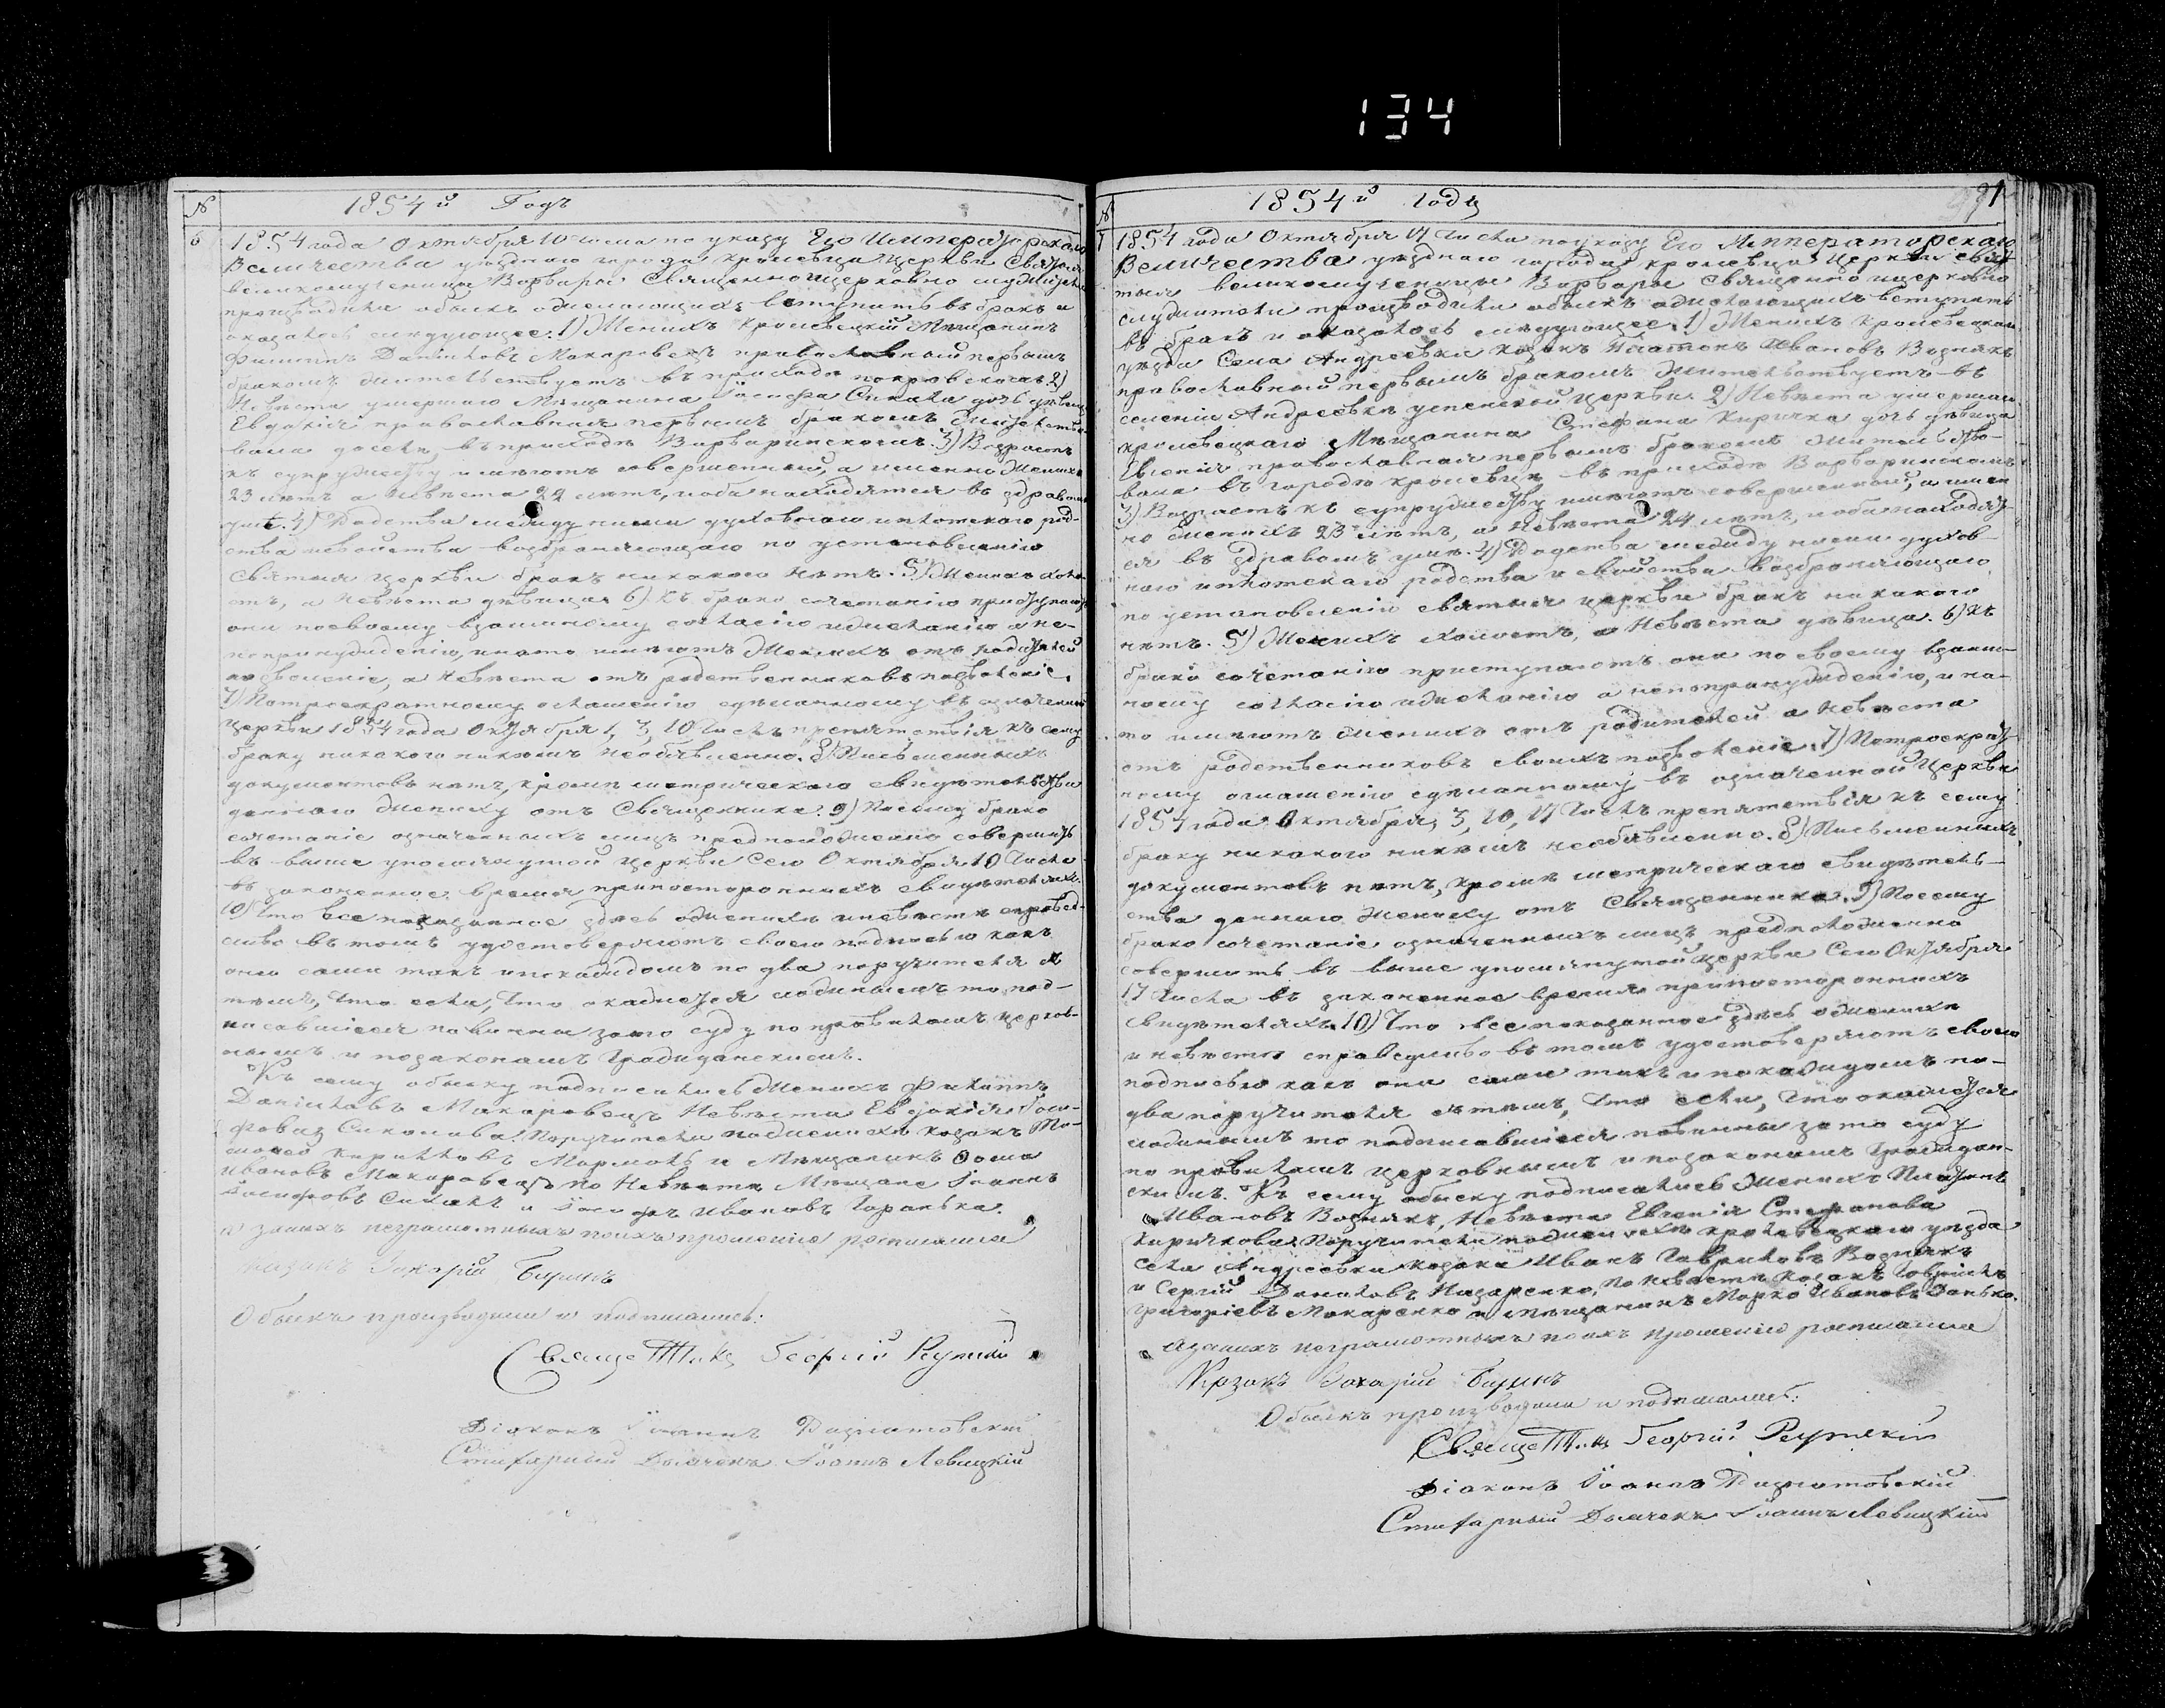 134
№ 1854й Годъ
6 1854 года Октября 10 числа по указу Его Императорскаго
Величества уезднаго города Кролевца Церкви Святыя
великомученицы Варвары Священно церковно служители
производили обыскъ о желающихъ вступить въ бракъ и
оказалось следующее. 1) Женихъ Кролевецкій Мѣщанинъ
Филиппъ Даниловъ Макаровецъ православный первымъ
бракомъ жительствуетъ въ приходе покровскомъ. 2)
Невѣста умершаго Мѣщанина Іосифа Сикала дочь дѣвица
Евдокія православная первымъ бракомъ жительство-
вала доселѣ въ приходѣ Варваринскомъ. 3) Возрастъ
къ супружеству имѣютъ совершенный, а именно Женихъ
23 лѣтъ а Невѣста 22 лѣтъ, и оба находятся въ здравомъ
умѣ. 4) Родства между ними духовнаго и плотскаго род-
ства и свойства возбраняющаго по установленію
Святыя церкви бракъ никакого нѣтъ. 5) Женихъ холо-
стъ, а Невѣста дѣвица. 6) Къ брако сочетанію приступаютъ
они по своему взаимному согласію и желанію а не-
по принужденію, и на то имѣютъ Женихъ отъ родителей
позволеніе, а Невѣста отъ родственниковъ позволеніе.
7) По троекратному оглашенію сдѣланному въ означенной
Церкви 1854 года Октября 1, 3, 10 числъ препятствія къ сему
браку никакого никѣмъ не объявленно. 8) Письменныхъ
документовъ нѣтъ, кромѣ метрическаго свидѣтельства
даннаго Жениху отъ Священника. 9) Посему брако
сочетаніе означенныхъ лицъ предположенно совершить
въ выше упомянутой церкви сего Октября 10 числа
въ законенное время при постороннихъ свидѣтеляхъ.
10) Что все показанное здѣсь о женихѣ и невѣстѣ справед-
ливо въ томъ удостоверяютъ своею подписью какъ
они сами такъ и по каждомъ по два поручителя съ
темъ, что если, что окажется ложнымъ то под-
писавшіеся повинны за то суду по правиламъ церков-
нымъ и по законамъ Гражданскимъ.
Къ сему обыску подписались Женихъ Филиппъ
Даниловъ Макаровецъ Невѣста Евдокія Іоси-
фовна Сикалова. Поручители по женихѣ козакъ
Кириловъ и Мѣщанинъ Фома
Ивановъ Макаровецъ по Невѣстѣ Мѣщане Іоаннъ
Іосифовъ Сикалъ и Іосифъ Ивановъ
а заихъ неграмотныхъ по ихъ прошенію росписался
козакъ Захарій
Обыскъ производили и подписались:
Священникъ Георгій Рутскій
Діаконъ Іоаннъ
Стихарный Дьячекъ Іоаннъ Левицкій
№ 1854й Годъ 91
7 1854 года Октября 17 числа по указу Его Императорскаго
Величества уезднаго города Кролевца Церкви Свя-
тыя великомученицы Варвары Священно и церковно
служители производили обыскъ о желающихъ вступить
въ бракъ и оказалось слѣдующее. 1) Женихъ Кролевецкаго
уѣзда Села Андреевки козакъ Платонъ Ивановъ Вознякъ
православный первымъ бракомъ жительствуетъ въ
селеніи Андреевкѣ успенской церкви. 2) Невѣста умершаго
кролевецкаго Мѣщанина Стефана Киричка дочь дѣвица
Евгенія православная первымъ бракомъ жительство-
вала въ городѣ кролевцѣ въ приходѣ Варваринскомъ
3) Возрастъ къ супружеству имѣютъ совершенный, а имен
но женихъ 23 лѣтъ, а Невѣста 24 лѣтъ, и оба находят-
ся въ здравомъ умѣ. 4) Родства между ними духов-
наго и плотскаго родства и свойства возбраняющаго
по установленію святыя церкви бракъ никакого
нѣтъ. 5) Женихъ холостъ, а Невѣста дѣвица. 6) Къ
брако сочетанію приступаютъ они по своему взаим-
ному согласію и желанію а не по принужденію, и на-
то имѣютъ женихъ отъ родителей а Невѣста
отъ родственниковъ своихъ позволеніе. 7) По троекрат-
ному оглашенію сдѣланному въ означенной Церкви
1854 года Октября, 3, 10, 17 числъ препятствія къ сему
браку никакого никѣмъ не объявленно. 8) Письменныхъ
документовъ нѣтъ, кромѣ метрическаго свидѣтель-
ства даннаго Жениху отъ Священника. 9) Посему
брако сочетаніе означенныхъ лицъ предположенно
совершить въ выше упомянутой церкви Сего Октября
17 числа въ законенное время при постороннихъ
свидѣтеляхъ. 10) Что все показанное здѣсь о женихѣ
и невѣстѣ справедливо въ томъ удостоверяютъ своею
подписью какъ они сами такъ и по каждомъ по-
два поручителя съ тѣмъ, что если, что окажется
ложнымъ то подписавшіеся повинны за то суду
по правиламъ церковнымъ и по законамъ Граждан-
скимъ. Къ сему обыску подписались Женихъ Платонъ
Ивановъ Вознякъ, Невѣста Евгенія Стефанова
Киричкова. Поручители по женихѣ кролевецкаго уѣзда
села Андреевки козаки Иванъ Гавриловъ Вознякъ
и Сергій Даниловъ Назаренко, по Невѣстѣ козакъ Гавріилъ
Григоріевъ Макаренко и мѣщанинъ Марко Ивановъ
а заихъ неграмотныхъ по ихъ прошенію росписался
Козакъ Захарій
Обыскъ производили и подписались:
Священникъ Георгій Рутскій
Діаконъ Іоаннъ
Стихарный Дьячекъ Іоаннъ Левицкій